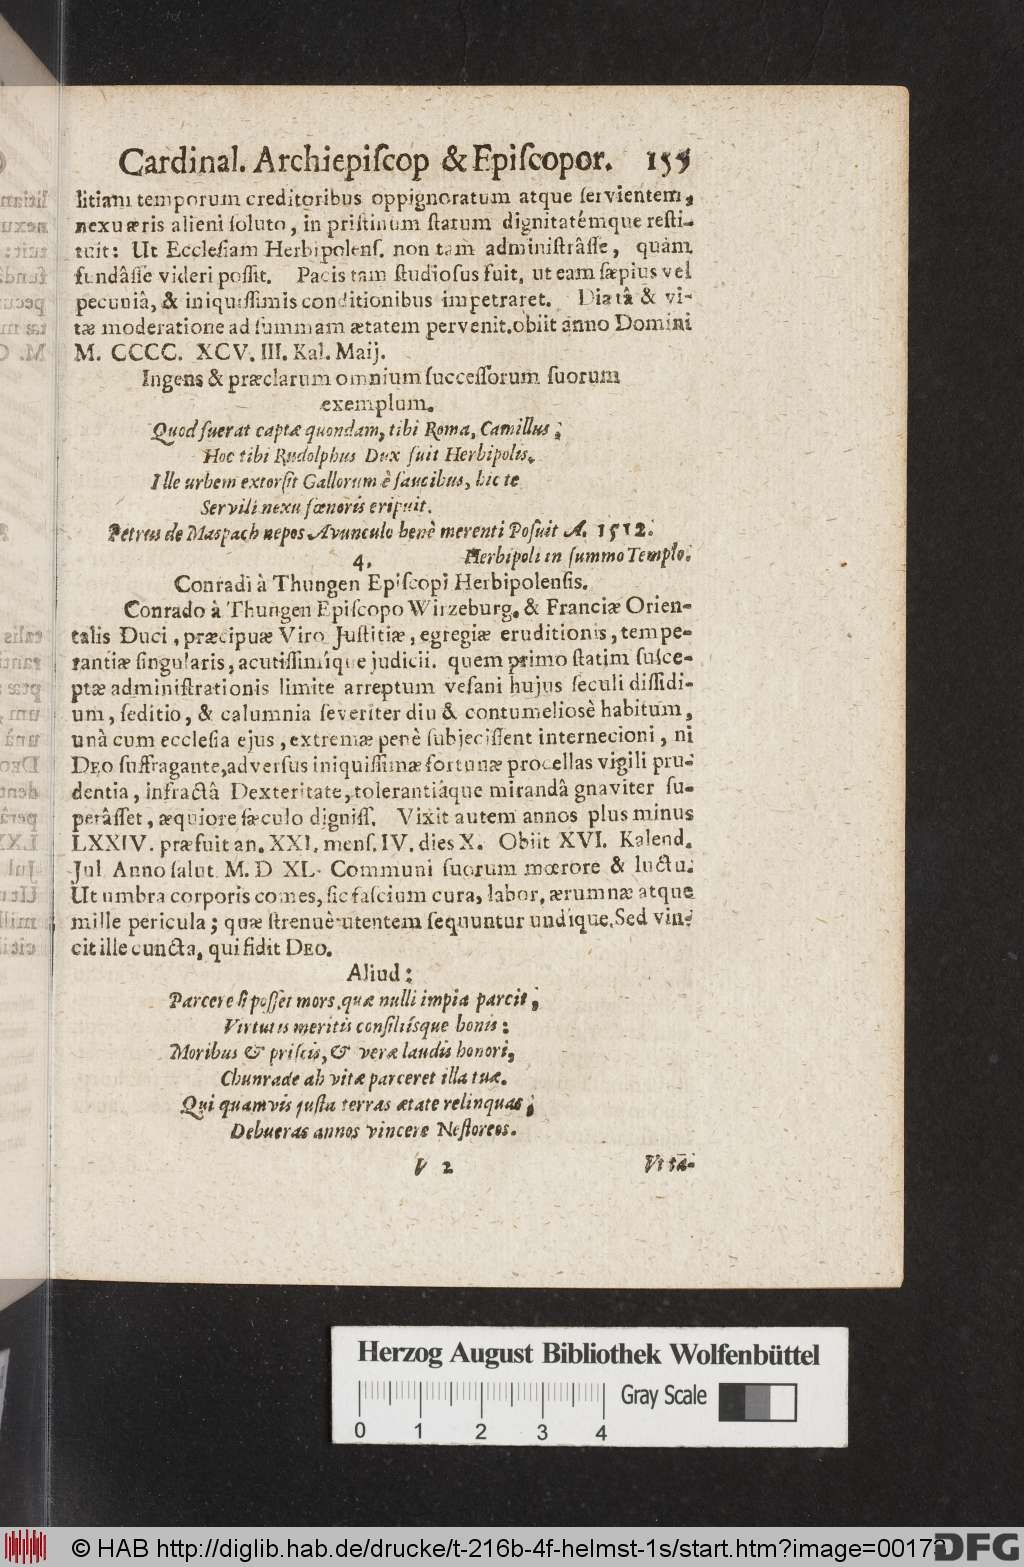 Cardinal. Archiepiſcop & Epiſcopor. 155
litiam temporum creditoribus oppignoratum atque ſervientem,
nexu æris alieni ſoluto, in priſtinum ſtatum dignitatémque reſti-
tuit: Ut Eccleſiam Herbipolenſ. non tam adminiſtrâſſe, quàm
fundâſſe videri poſſit. Pacis tam ſtudioſus fuit, ut eam ſæpius vel
pecuniâ, & iniquiſſimis conditionibus impetraret. Diætâ & vi-
tæ moderatione ad ſummam ætatem pervenit. obiit anno Domini
M. CCCC. XCV. III. Kal. Maij.
Ingens & præclarum omnium ſucceſſorum ſuorum
exemplum.
Quod fuerat captæ quondam, tibi Roma, Camillus;
Hoc tibi Rudolphus Dux fuit Herbipolis.
Ille urbem extorſit Gallorum è faucibus, hic te
Servili nexu fœnoris eripuit.
Petrus de Maspach nepos Avunculo benè merenti Poſuit A. 1512.
4. Herbipoli in ſummo Templo.
Conradi à Thungen Epiſcopi Herbipolenſis.
Conrado à Thungen Epiſcopo Wirzeburg. & Franciæ Orien-
talis Duci, præcipuæ Viro Juſtitiæ, egregiæ eruditionis, tempe-
rantiæ ſingularis, acutiſſimíque judicii. quem primo ſtatim ſuſce-
ptæ adminiſtrationis limite arreptum veſani hujus ſeculi diſſidi-
um, ſeditio, & calumnia ſeveriter diu & contumelioſè habitum,
unà cum eccleſia ejus, extremæ penè ſubjeciſſent internecioni, ni
DEO ſuffragante, adverſus iniquiſſimæ fortunæ procellas vigili pru-
dentia, infractâ Dexteritate, tolerantiáque mirandâ gnaviter ſu-
perâſſet, æquiore ſæculo digniſſ. Vixit autem annos plus minus
LXXIV. præfuit an. XXI. menſ. IV. dies X. Obiit XVI. Kalend.
Jul. Anno ſalut. M. D XL. Communi ſuorum mœrore & luctu.
Ut umbra corporis comes, ſic faſcium cura, labor, ærumnæ atque
mille pericula; quæ ſtrenuè utentem ſequuntur undique. Sed vin-
cit ille cuncta, qui fidit DEO.
Aliud:
Parcere ſi poſſet mors, quæ nulli impia parcit,
Virtutis meritis conſiliíſque bonis:
Moribus & priſcis, & veræ laudis honori,
Chunrade ah vitæ parceret illa tuæ.
Qui quamvis juſta terras ætate relinquas;
Debueras annos vincere Neſtoreos.
V 2 Vita-
Herzog August Bibliothek Wolfenbüttel
Gray Scale
0 1 2 3 4
© HAB http://diglib.hab.de/drucke/t-216b-4f-helmst-1s/start.htm?image=00173
DFG